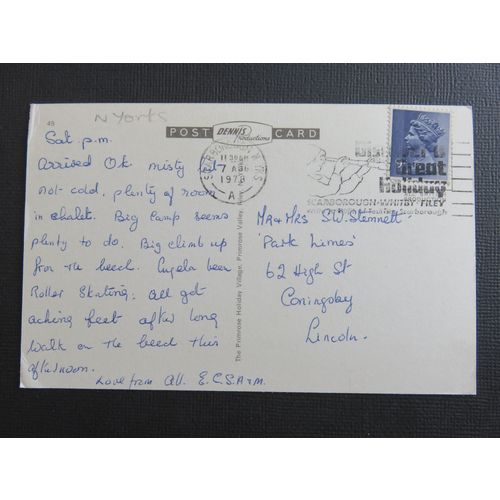 48
N Yorks
POST DENNIS Productions CARD
Sat p.m.
Arrived O.k. misty but
not cold. plenty of room
in chalet. Big Camp seems
plenty to do. Big climb up
from the beech. been
Roller Skating. all got
aching feet after long
walk on the beed this
afternoon.
Love from All. E.C.S.A & M.
The Primrose Holiday Village, Primrose Valley,
SCARBOROUGH N. YORKS
7 AUG
1978
A
Great
Holiday
SCARBOROUGH-WHITBY-FILEY
Scarborough
Mr & Mrs S.W. Stennett
'Park Limes'
62 High St
Coningsby
Lincoln.